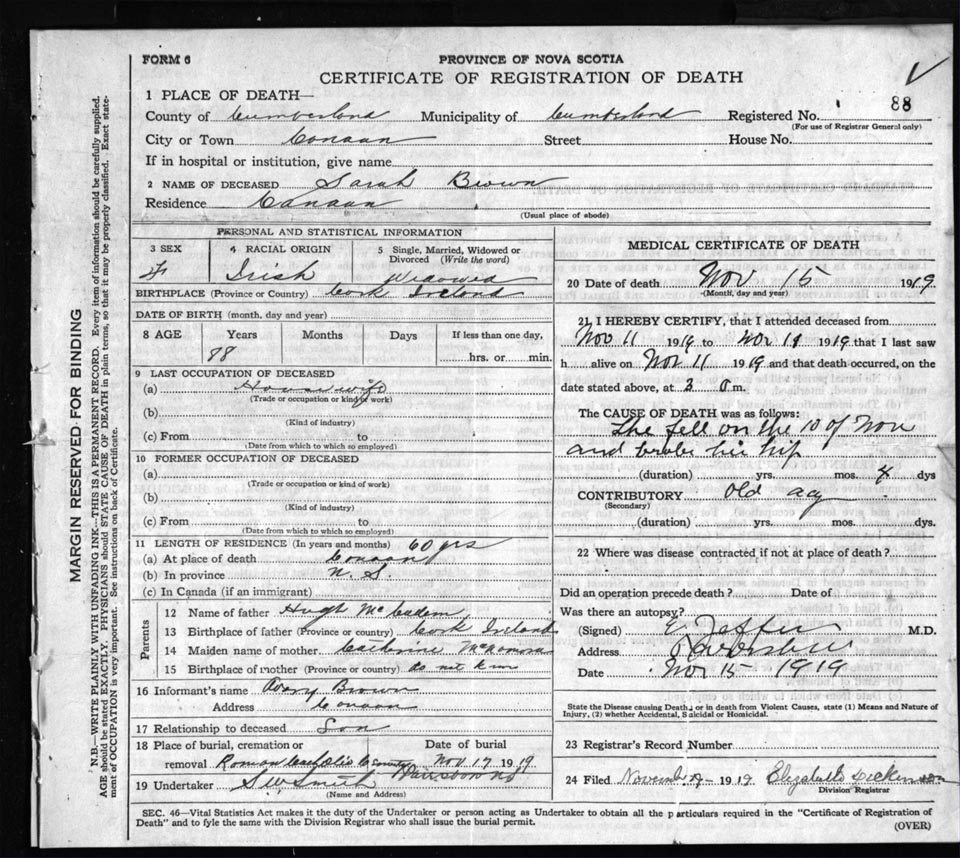 FORM 6
PROVINCE OF NOVA SCOTIA
CERTIFICATE OF REGISTRATION OF DEATH
1 PLACE OF DEATH—
88
County of Cumberland Municipality of Cumberland Registered No.
(For use of Registrar General only)
City or Town Canaan Street House No.
If in hospital or institution, give name
2 NAME OF DECEASED Sarah Brown
Residence Canaan
(Usual place of abode)
PERSONAL AND STATISTICAL INFORMATION
3 SEX 4 RACIAL ORIGIN 5 Single, Married, Widowed or Divorced (Write the word)
F Irish Widowed
BIRTHPLACE (Province or Country) Cork Ireland
DATE OF BIRTH (month, day and year)
8 AGE Years Months Days If less than one day,
88 hrs. or min.
9 LAST OCCUPATION OF DECEASED
(a) House wife
(Trade or occupation or kind of work)
(b)
(Kind of industry)
(c) From to
(Date from which to which so employed)
10 FORMER OCCUPATION OF DECEASED
(a)
(Trade or occupation or kind of work)
(b)
(Kind of industry)
(c) From to
(Date from which to which so employed)
11 LENGTH OF RESIDENCE (In years and months) 60 yrs
(a) At place of death Canaan
(b) In province N. S.
(c) In Canada (if an immigrant)
Parents
12 Name of father Hugh Mc
13 Birthplace of father (Province or country) Cork Ireland
14 Maiden name of mother Catherine McNamara
15 Birthplace of mother (Province or country) do not know
16 Informant's name Avory Brown
Address Canaan
17 Relationship to deceased Son
18 Place of burial, cremation or removal Roman Catholic Date of burial Nov 17 1919
19 Undertaker S.W. Smith
(Name and Address)
MEDICAL CERTIFICATE OF DEATH
20 Date of death Nov 15 1919
(Month, day and year)
21 I HEREBY CERTIFY, that I attended deceased from
Nov 11 1919 to Nov 11 1919 that I last saw
h alive on Nov 11 1919 and that death occurred, on the
date stated above, at 3 a m.
The CAUSE OF DEATH was as follows:
She fell on the 10 of Nov
and broke her hip
(duration) yrs. mos. 4 dys
CONTRIBUTORY Old age
(Secondary)
(duration) yrs. mos. dys.
22 Where was disease contracted if not at place of death?
Did an operation precede death? Date of
Was there an autopsy?
(Signed) M.D.
Address
Date Nov 15 1919
State the Disease causing Death, or in death from Violent Causes, state (1) Means and Nature of
Injury, (2) whether Accidental, Suicidal or Homicidal.
23 Registrar's Record Number
24 Filed November 1919 Elizabeth
Division Registrar
SEC. 46—Vital Statistics Act makes it the duty of the Undertaker or person acting as Undertaker to obtain all the particulars required in the "Certificate of Registration of
Death" and to fyle the same with the Division Registrar who shall issue the burial permit.
(OVER)
MARGIN RESERVED FOR BINDING
N.B.—WRITE PLAINLY WITH UNFADING INK—THIS IS A PERMANENT RECORD. Every item of information should be carefully supplied.
AGE should be stated EXACTLY. PHYSICIANS should STATE CAUSE OF DEATH in plain terms, so that it may be properly classified. Exact state-
ment of OCCUPATION is very important. See instructions on back of Certificate.